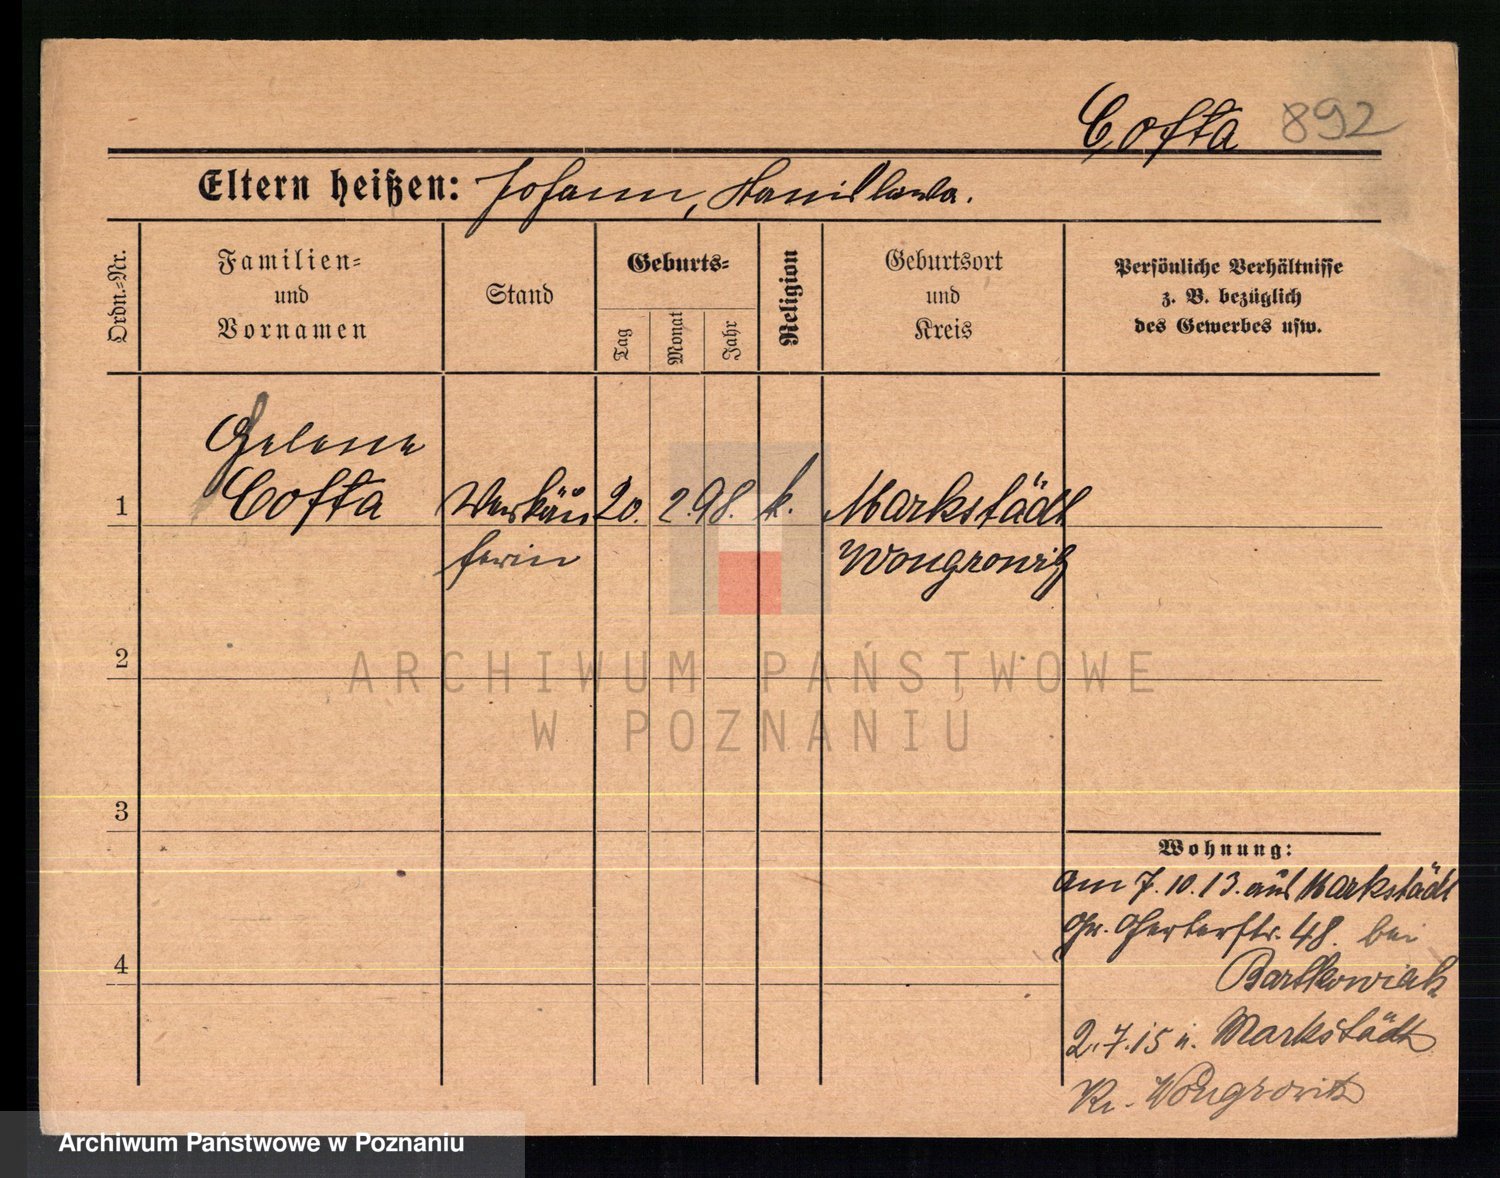 Cofta 892
Eltern heißen: Johann, Stanislawa.
Ordn.-Nr.
Familien-
und
Vornamen
Stand
Geburts-
Tag
Monat
Jahr
Religion
Geburtsort
und
Kreis
Persönliche Verhältnisse
z. B. bezüglich
des Gewerbes usw.
Helene
1 Cofta Verkäu 20. 2. 98. k. Markstädt
ferin Wongrowitz
2
ARCHIWUM PAŃSTWOWE
W POZNANIU
3
Wohnung:
am 7.10.13. aus Markstädt
Gr. Gerberstr. 48. bei
4
Bartkowiak
2.7.15 n. Markstädt
Kr. Wongrowitz
Archiwum Państwowe w Poznaniu